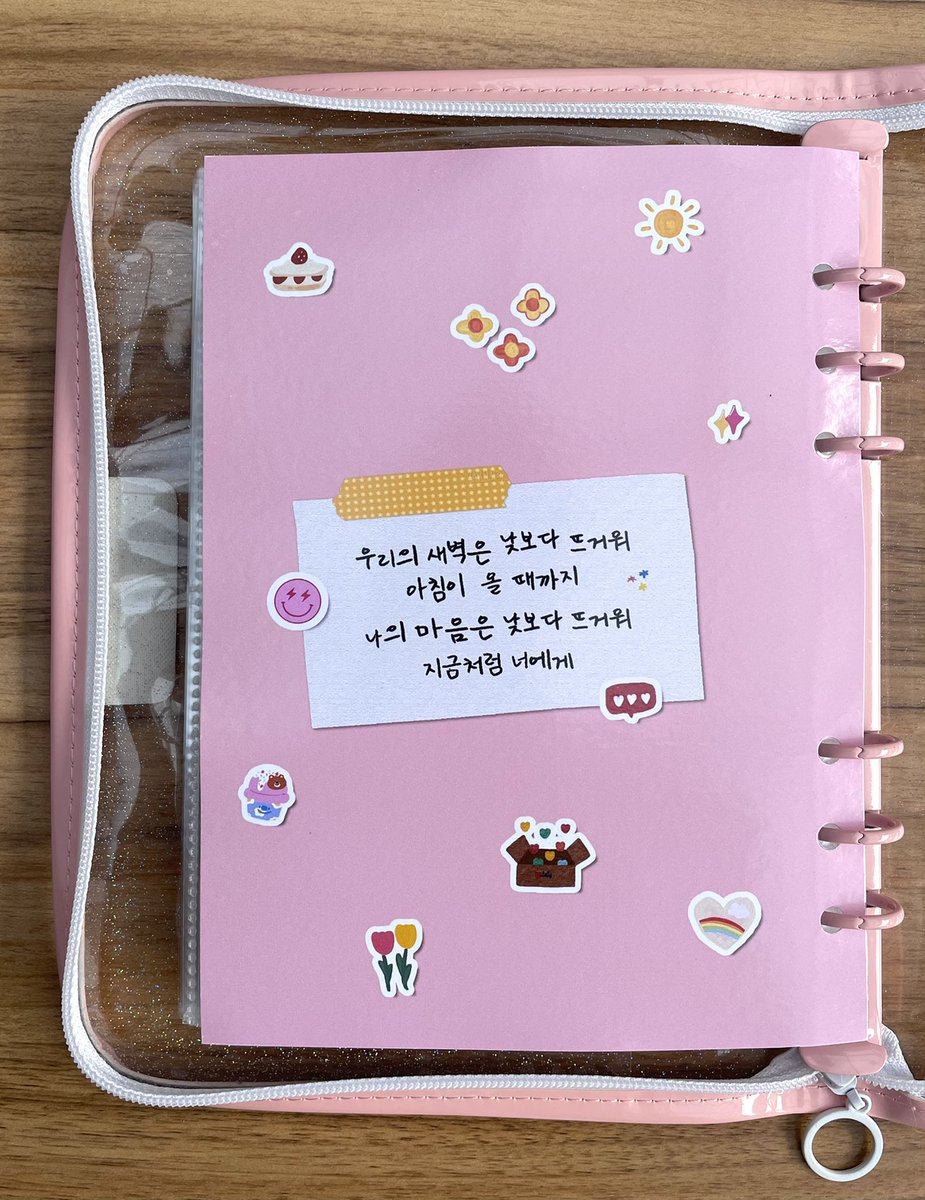 우리의 새벽은 낮보다 뜨거워
아침이 올 때까지
나의 마음은 낮보다 뜨거워
지금처럼 너에게